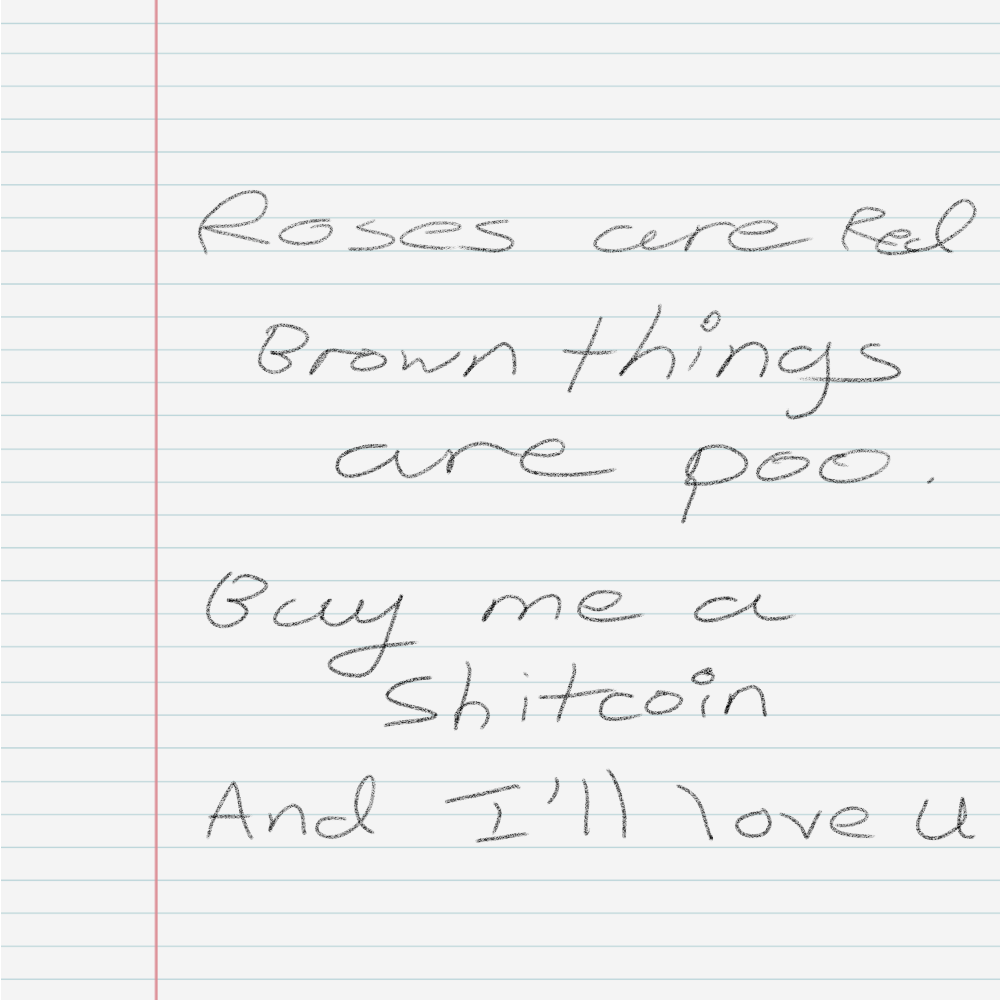 Roses are Red
Brown things
are poo.
Buy me a
Shitcoin
And I'll love u